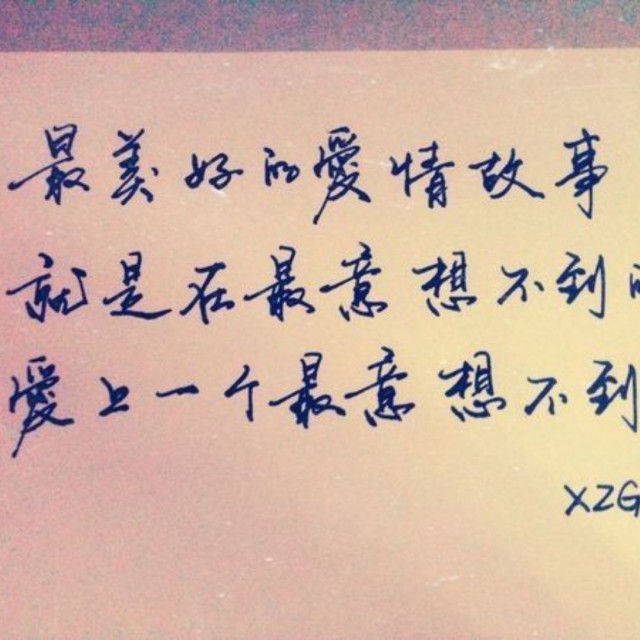 最美好的愛情故事
就是在最意想不到
愛上一个最意想不到
XZG